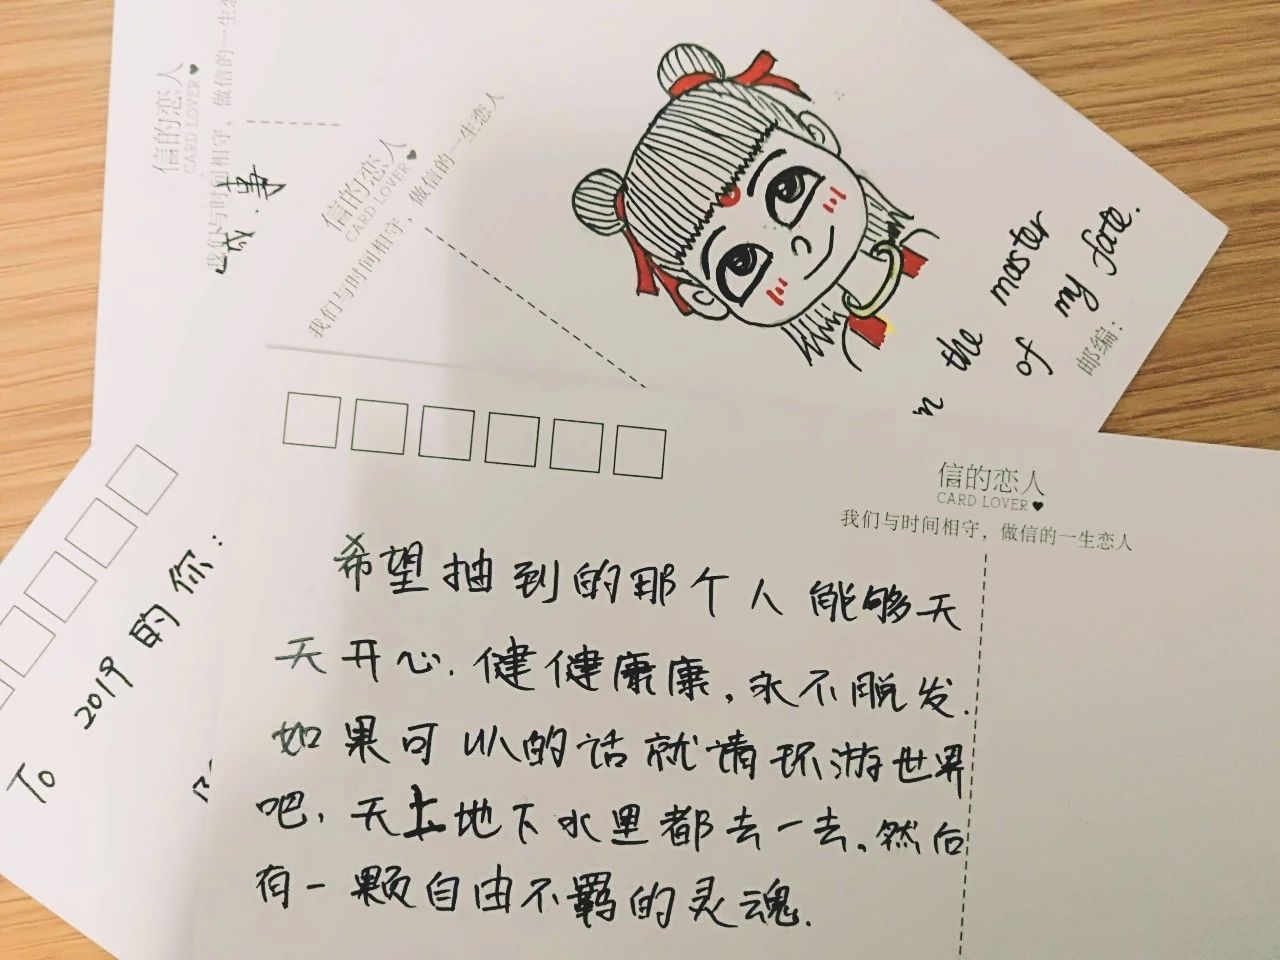 信的恋人
CARD LOVER
我们与时间相守，做信的一生
事
信的恋人
CARD LOVER
我们与时间相守，做信的一生恋人
the master
of my fate.
邮编：
To 2019的你：
信的恋人
CARD LOVER
我们与时间相守，做信的一生恋人
希望抽到的那个人能够天
天开心.健健康康,永不脱发.
如果可以的话就请环游世界
吧,天上地下水里都去一去.然后
有一颗自由不羁的灵魂.